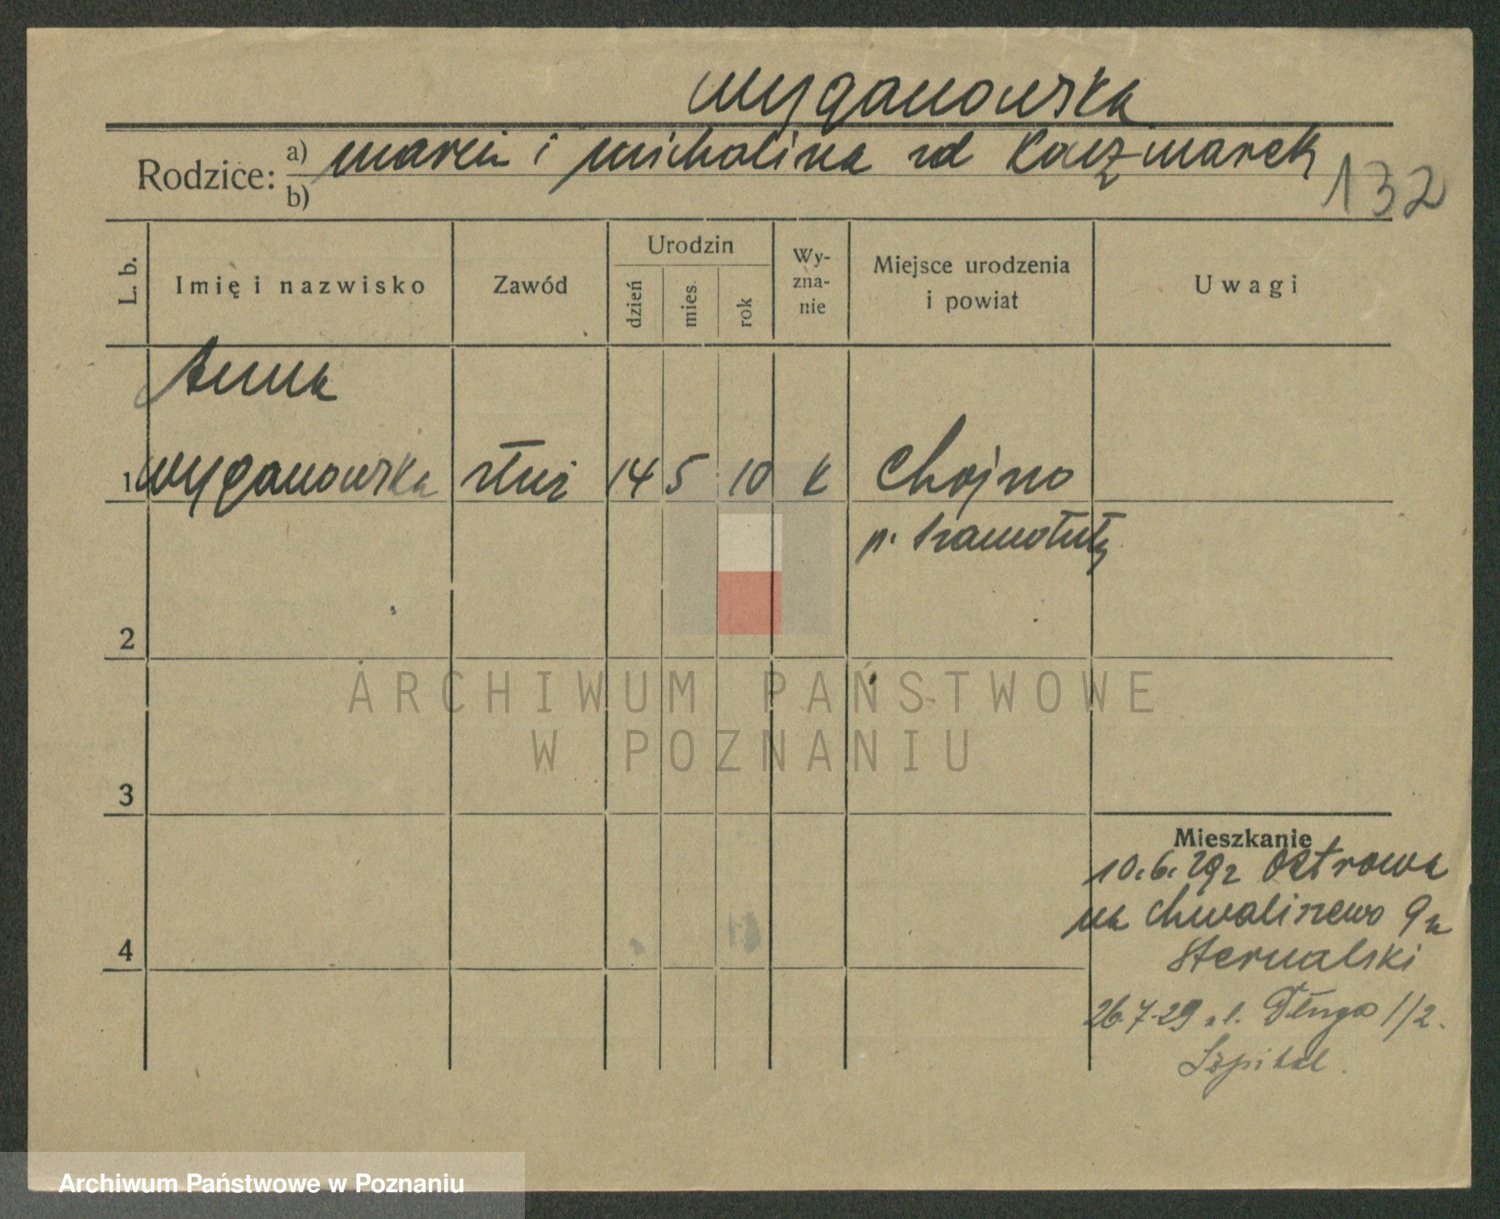 Wyganowska
Rodzice: a) Marcin i Michalina zd Kaczmarek
b)
132
L. b.
Imię i nazwisko
Zawód
Urodzin
dzień
mies.
rok
Wy-
zna-
nie
Miejsce urodzenia
i powiat
Uwagi
Anna
1 Wyganowska służ 14 5 10 k Chojno
p. Szamotuły
2
ARCHIWUM PAŃSTWOWE
W POZNANIU
3
Mieszkanie
10.6.29 z Ostrowa
na Chwaliszewo 9 u
26.7.29 ul. Długa 1/2.
Szpital.
4
Archiwum Państwowe w Poznaniu